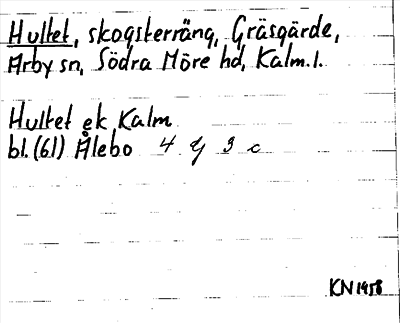 Hultet, skogsterräng, Gräsgärde,
Arby sn, Södra Möre hd, Kalm. l.
Hultet ek Kalm
bl. (61) Ålebo 4 G 3 c
KN 1958